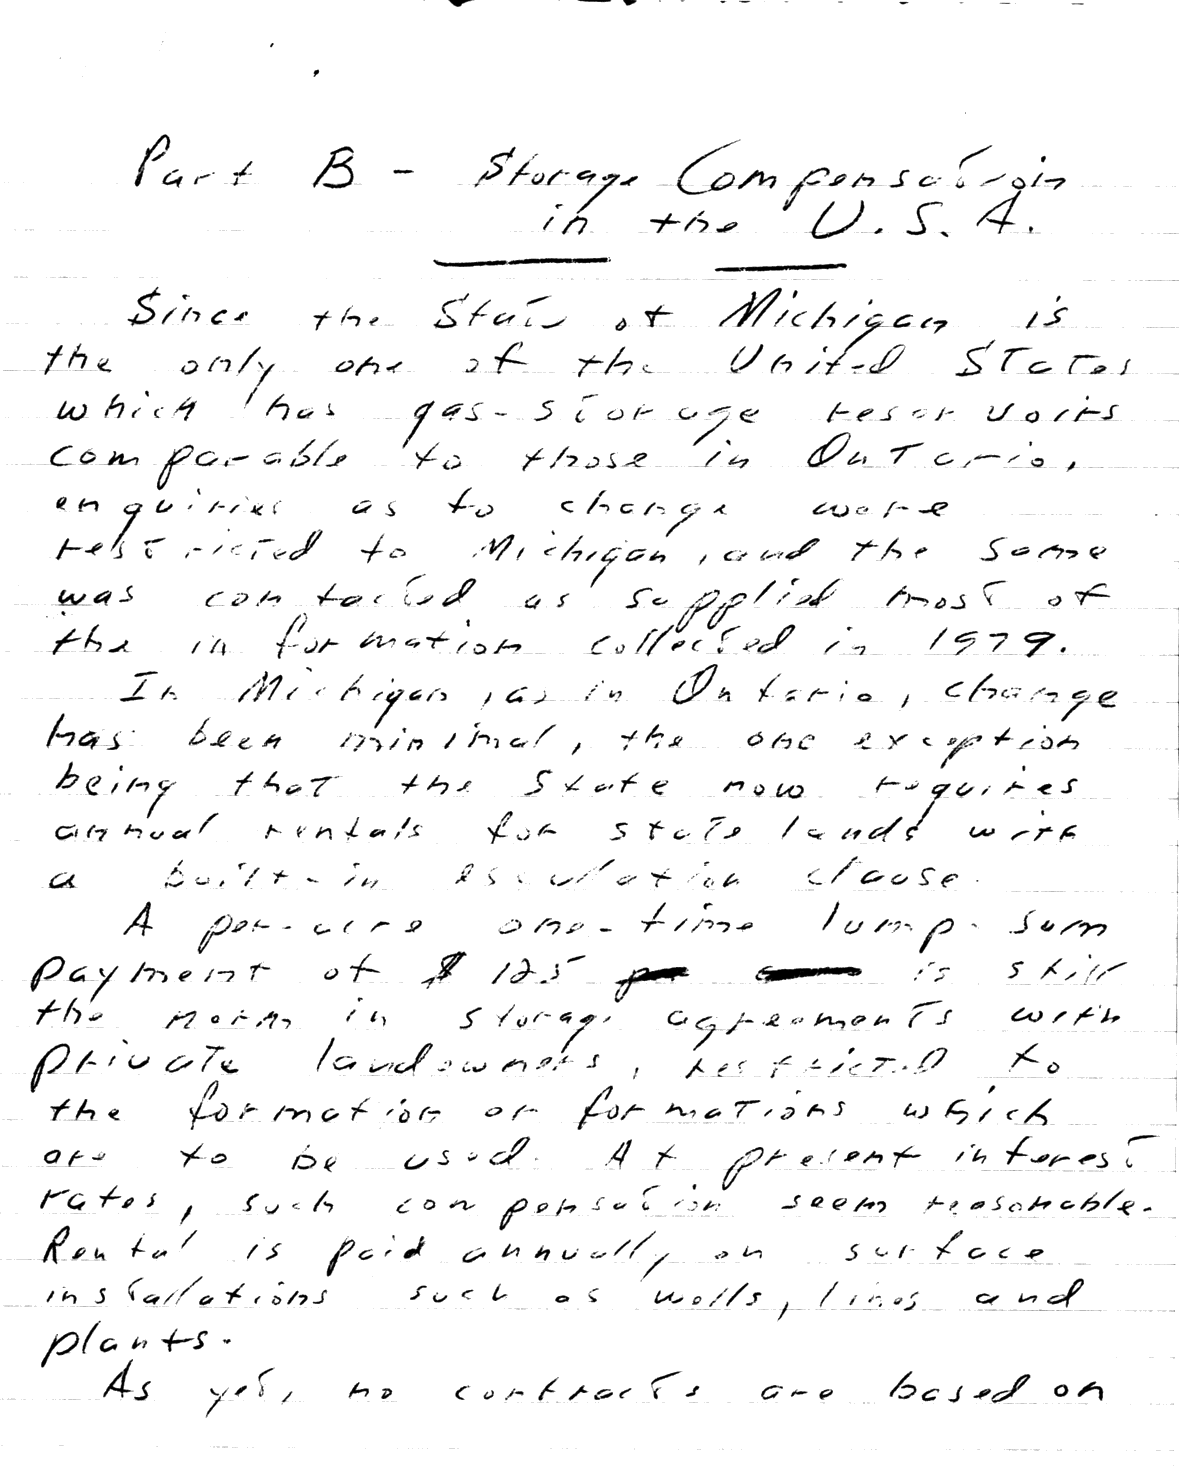 Part B - Storage Compensation
in the U.S.A.
Since the State of Michigan is
the only one of the United States
which has gas-storage reservoirs
comparable to those in Ontario,
enquiries as to change were
restricted to Michigan, and the same
was contacted as supplied most of
the information collected in 1979.
In Michigan, as in Ontario, change
has been minimal, the one exception
being that the State now requires
annual rentals for state lands with
a built-in escalation clause.
A per-acre one-time lump-sum
payment of $125 is still
the norm in storage agreements with
private landowners, restricted to
the formation or formations which
are to be used. At present interest
rates, such compensation seem reasonable.
Rental is paid annually on surface
installations such as wells, lines and
plants.
As yet, no contracts are based on